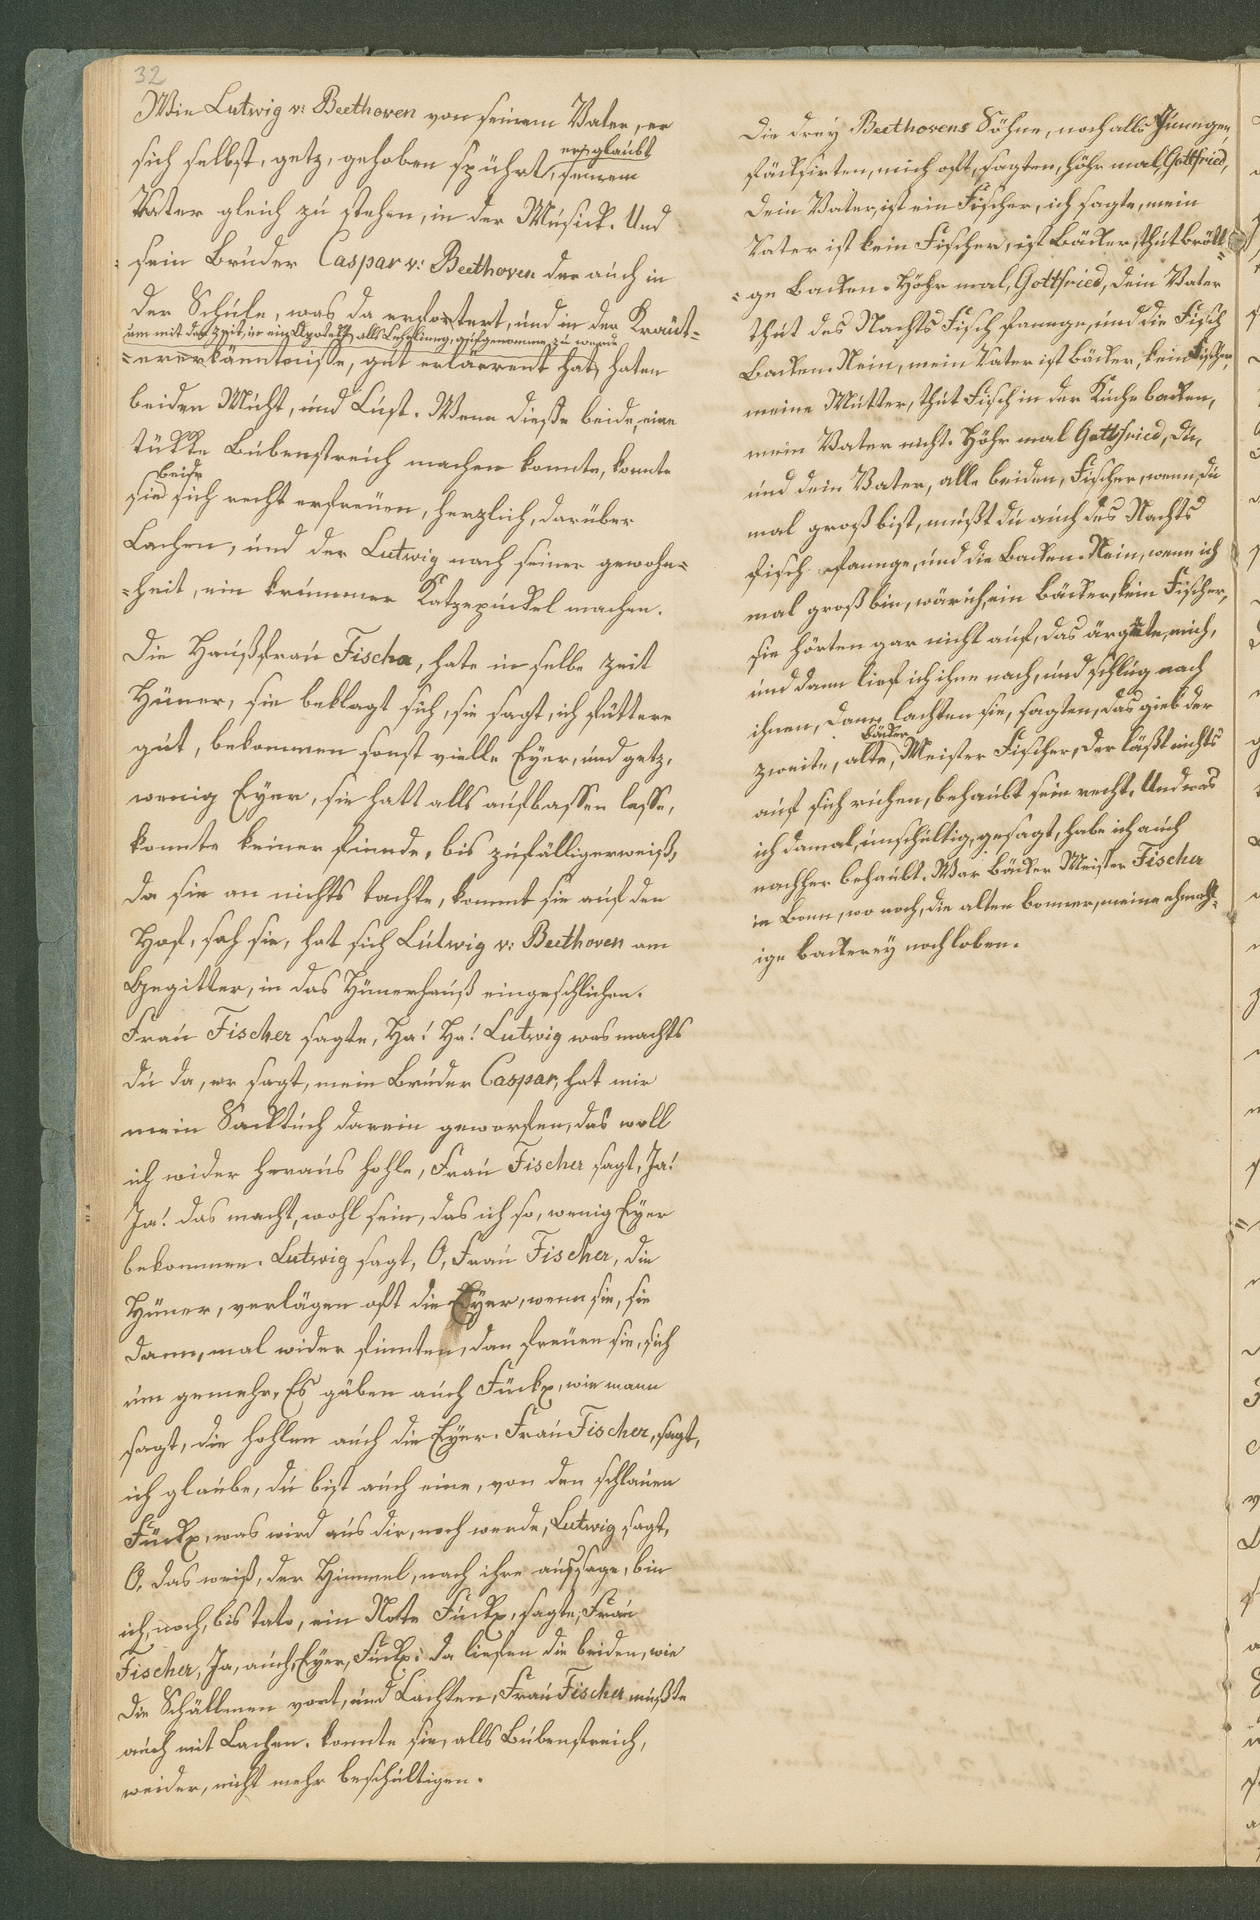 32
Wie Lutwig v: Beethoven von seinem Vater, er
sich selbst, getz, gehoben spührt, er glaubt seinem
Vater gleich zu stehen, in der Musick. Und
sein Bruder Caspar v: Beethoven der auch in
der Schule, was da erfortert, und in der Kraüt=
um mit der Zeit, in ein Apoteck als Lehrling, aufgenomme zu werde
=ererkänntnisse, gut erlärrent hat, haten
beiden Muht, und Lust. Wenn diesse beide, eine
tükke Bubenstreich machen konnte, konnte
sie beide sich recht erfreüen, herzlich, darüber
Lachen, und der Lutwig nach seiner gewohn=
=heit, ein krummer Katzepuckel machen.
Die Haußfrau Fischer, hate in selbe zeit
Hüner, sie beklagt sich, sie sagt, ich füttere
gut, bekommen sonst vielle Eyer, und getz,
wenig Eyer, sie hatt alls aufbassen lasse,
konnte keiner finnde, bis zufälligerweiß,
da sie an nichts tachte, kommt sie auf den
Hof, sah sie, hat sich Lutwig v: Beethoven am
Gegitter, in das Hünerhauß eingeschlichen.
Frau Fischer sagte, Ha! Ha! Lutwig was machts
du da, er sagt, mein Bruder Caspar, hat mir
mein Sacktuch darein geworfen, das woll
ich wider heraus hohle, Frau Fischer sagt, Ja!
Ja! das macht, wohl sein, das ich so, wenig Eyer
bekommen. Lutwig sagt, O, Frau Fischer, die
Hüner, verlägen oft die Eyer, wenn sie, sie
dann, mal wider finnten, dan freüen sie, sich
um gemehr, Es gäben auch Fückx, wie mann
sagt, die hohlen auch die Eyer. Frau Fischer, sagt,
ich glaube, du bist auch eine, von den schlauen
Fückx, was wird aus dir, noch werde, Lutwig sagt,
O, das weiß, der Himmel, nach ihre aussage, bin
ich, noch, bis tato, ein Note Fückx, sagte, Frau
Fischer, Ja, auch, Eyer, Fückx: da liefen die beiden, wie
die Schällmen vort, und Lachten, Frau Fischer mußte
auch mit Lachen. konnte sie, alls Bubenstreich,
weider, nicht mehr beschultigen.
Die drey Beethovens Söhne, noch alls Junngen,
fäcksirten, mich oft, sagten, höhr mal, Gottfried,
Dein Vater, ist ein Fischer, ich sagte, mein
Vater ist kein Fischer, ist Bäcker, thut brödt=
=ge Backen. Höhr mal, Gottfried, dein Vater
thut des Nachts Fisch fannge, und die Fisch
Backen. Nein, mein Vater ist Bäcker, kein Fischer,
meine Mutter, thut Fisch in der Küche backen,
mein Vater nicht. Höhr mal Gottfried, du,
und dein Vater, alle beiden, Fischer, wenn du
mal groß bist, mußt du auch des Nachts
fisch fannge, und die Backen. Nein, wenn ich
mal groß bin, wär ich, ein Bäcker, kein Fischer,
sie hörten gar nicht auf, das ärgerte, mich,
und dann lief ich ihne nach, und schlug nach
ihnen, dann lachten sie, sagten, das gieb der
zweite, alte, Bäcker Meister Fischer, der läßt nichts
auf sich ruhen, behaubt sein recht. Und was
ich damal, unschultig, gesagt, habe ich auch
nachher behaubt. War Bäcker Meister Fischer
in Bonn, wo noch, die alten bonner, meine ehmah=
ige backerey noch loben.